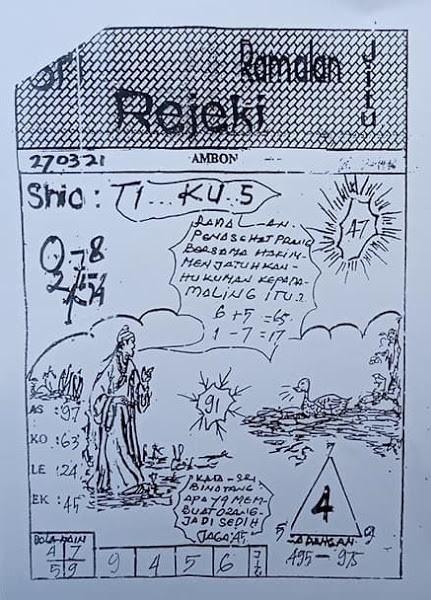 Sri
Ramalan
Jitu
Rejeki
270321
AMBON
Shio : TI...KU.5
RAMAL-AN.
PENASEHAT
BERSAMA HAKIM
MENJATUHKAN-
HUKUMAN KEPADA-
MALING ITU.2
6+5=65
1-7=17
47
0-8
91
AS : 97
KO : 63
LE : 24
EK : 45
KATA-SRI
BINATANG
APA YG MEM-
BUAT ORANG-
JADI SEDIH
JAGA 45
7
4
5
9
495-975
BOLA MAIN
4 7
5 9
9 4 5 6